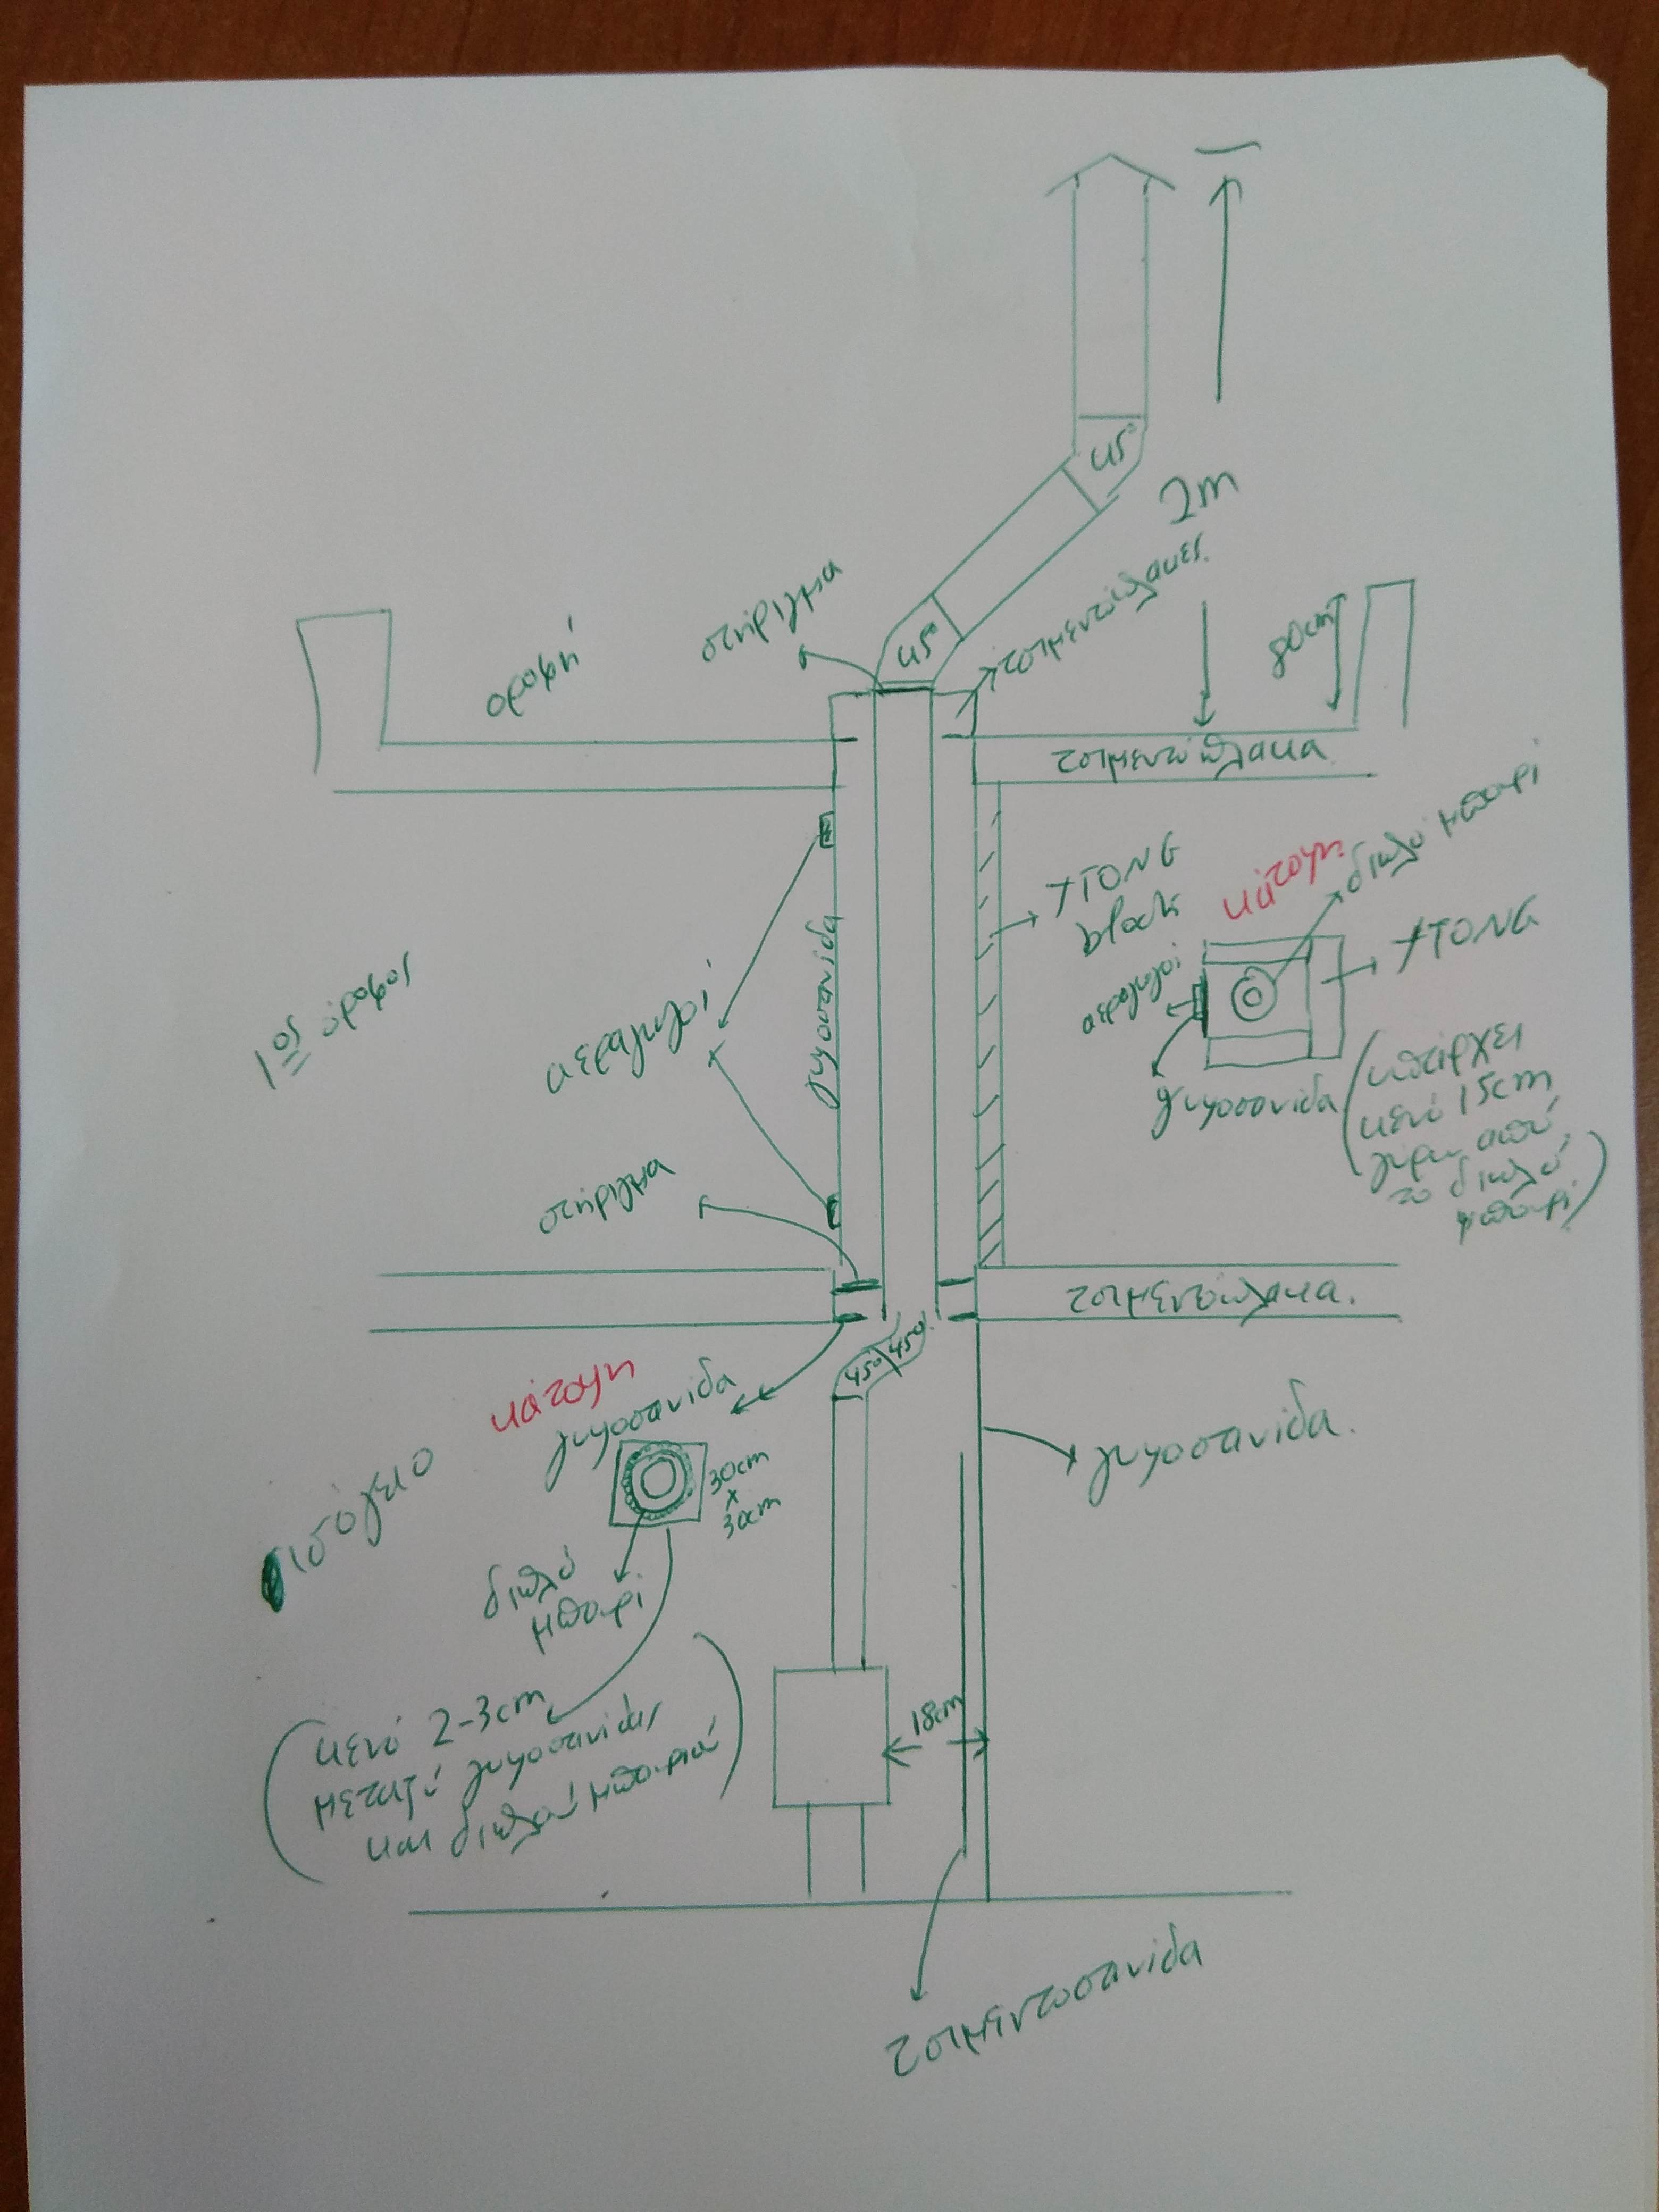 45°
2m
στήριγμα
τσιμεντόπλακες.
45°
80cm
οροφή
τσιμεντόπλακα
διπλό μπουρί
XTONG
block
κάτοψη
XTONG
αεραγωγοί
γυψοσανίδα
1ος όροφος
αεραγωγοί
γυψοσανίδα
(υπάρχει
κενό 15cm
γύρω από
το διπλό
μπουρί)
στήριγμα
τσιμεντόπλακα.
45° 45°
κάτοψη
γυψοσανίδα
30cm
x
30cm
γυψοσανίδα.
ισόγειο
διπλό
μπουρί
(κενό 2-3cm
μεταξύ γυψοσανίδας
και διπλού μπουριού)
18cm
τσιμεντοσανίδα